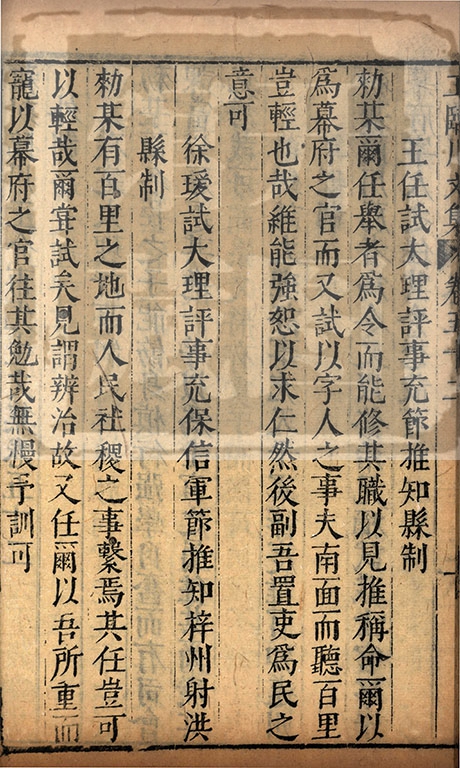 王臨川文集 卷五十二
王任試大理評事充節推知縣制
勑某爾任舉者爲令而能修其職以見推稱命爾以
爲幕府之官而又試以字人之事夫南面而聽百里
豈輕也哉維能強恕以求仁然後副吾置吏爲民之
意可
徐瑗試大理評事充保信軍節推知梓州射洪
縣制
勑某有百里之地而人民社稷之事繫焉其任豈可
以輕哉爾嘗試矣見謂辨治故又任爾以吾所重而
寵以幕府之官往其勉哉無慢予訓可